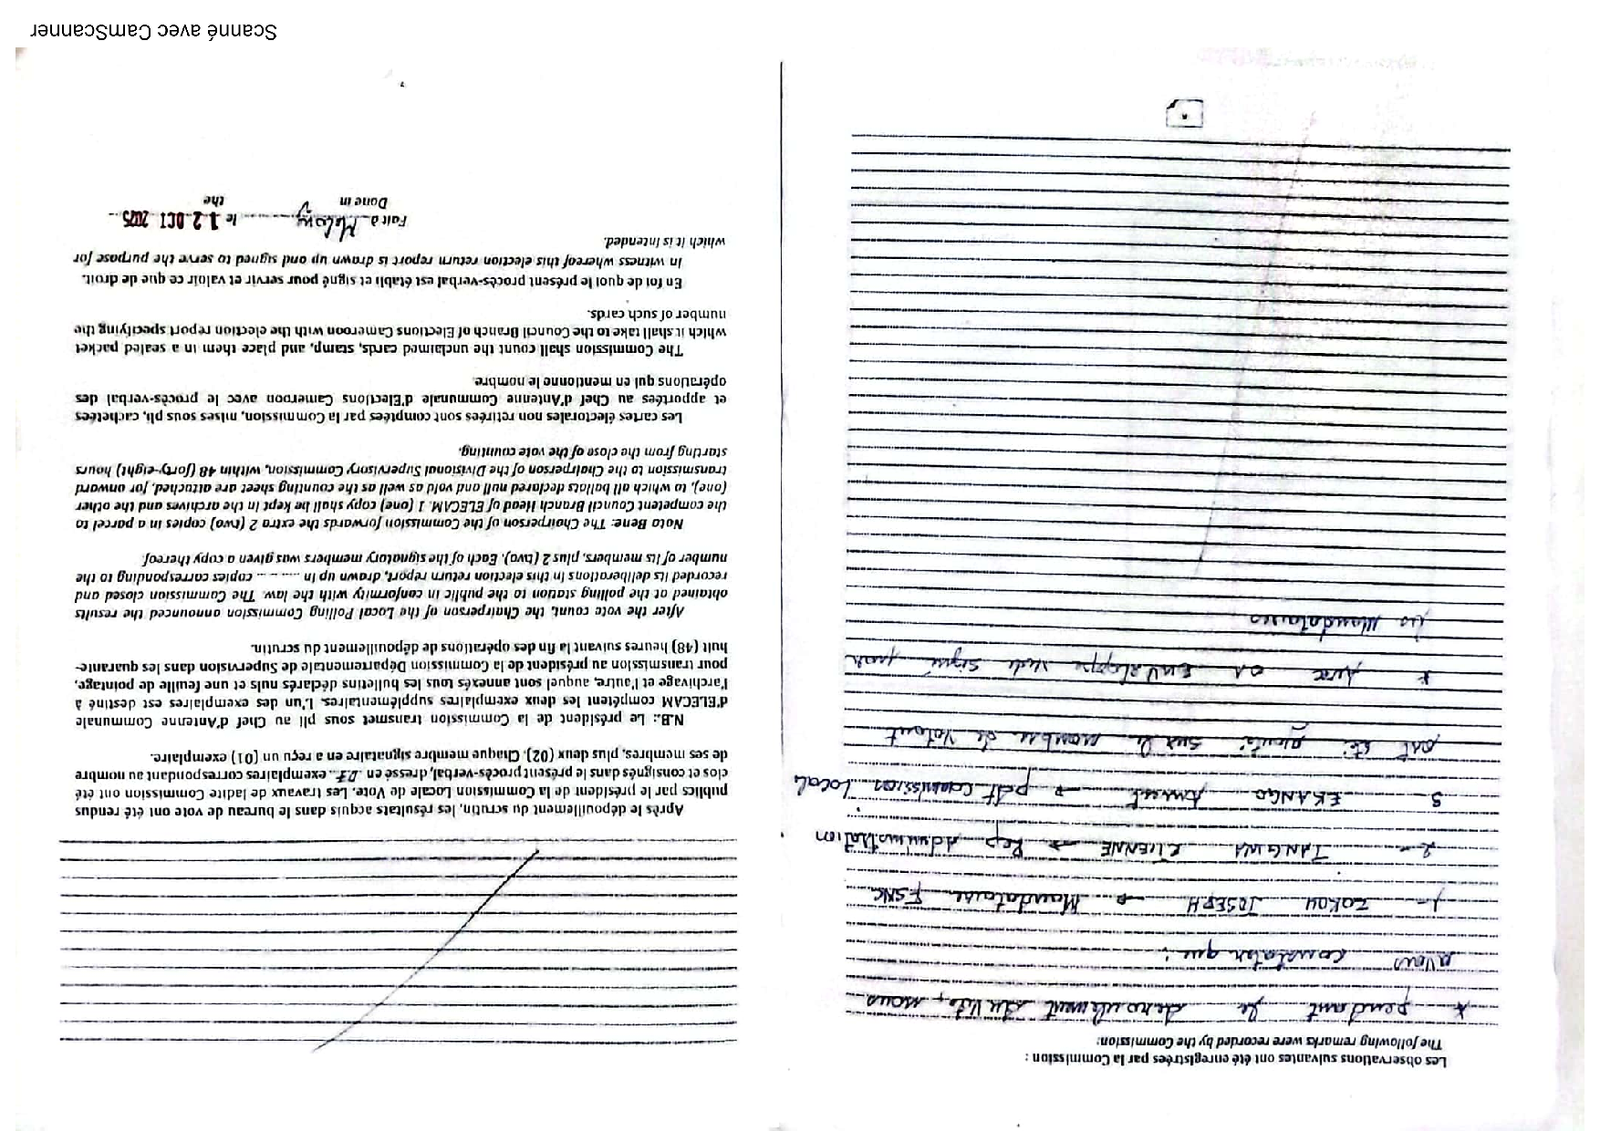 Les observations suivantes ont été enregistrées par la Commission :
The following remarks were recorded by the Commission:
* pendant le deroulement du vote, nous
avons constater que :
1- ZAKOU JOSEPH → Mandataire FSNC
2- TANGWA ETIENNE → Rep Administration
3- EKANGO → pdt commission Local
ont été ajouté sur le nombre de votant
* avec 01 Enveloppe vide signé par
les Mandataires
Après le dépouillement du scrutin, les résultats acquis dans le bureau de vote ont été rendus
publics par le président de la Commission Locale de Vote. Les travaux de ladite Commission ont été
clos et consignés dans le présent procès-verbal, dressé en exemplaires correspondant au nombre
de ses membres, plus deux (02). Chaque membre signataire en a reçu un (01) exemplaire.
N.B.: Le président de la Commission transmet sous pli au Chef d'Antenne Communale
d'ELECAM compétent les deux exemplaires supplémentaires. L'un des exemplaires est destiné à
l'archivage et l'autre, auquel sont annexés tous les bulletins déclarés nuls et une feuille de pointage,
pour transmission au président de la Commission Départementale de Supervision dans les quarante-
huit (48) heures suivant la fin des opérations de dépouillement du scrutin.
After the vote count, the Chairperson of the Local Polling Commission announced the results
obtained at the polling station to the public in conformity with the law. The Commission closed and
recorded its deliberations in this election return report, drawn up in ........ copies corresponding to the
number of its members, plus 2 (two). Each of the signatory members was given a copy thereof.
Nota Bene: The Chairperson of the Commission forwards the extra 2 (two) copies in a parcel to
the competent Council Branch Head of ELECAM. 1 (one) copy shall be kept in the archives and the other
(one), to which all ballots declared null and void as well as the counting sheet are attached, for onward
transmission to the Chairperson of the Divisional Supervisory Commission, within 48 (forty-eight) hours
starting from the close of the vote counting.
Les cartes électorales non retirées sont comptées par la Commission, mises sous pli, cachetées
et apportées au Chef d'Antenne Communale d'Elections Cameroon avec le procès-verbal des
opérations qui en mentionne le nombre.
The Commission shall count the unclaimed cards, stamp, and place them in a sealed packet
which it shall take to the Council Branch of Elections Cameroon with the election report specifying the
number of such cards.
En foi de quoi le présent procès-verbal est établi et signé pour servir et valoir ce que de droit.
In witness whereof this election return report is drawn up and signed to serve the purpose for
which it is intended.
Fait à le 12 OCT 2025
Done in the
Scanné avec CamScanner